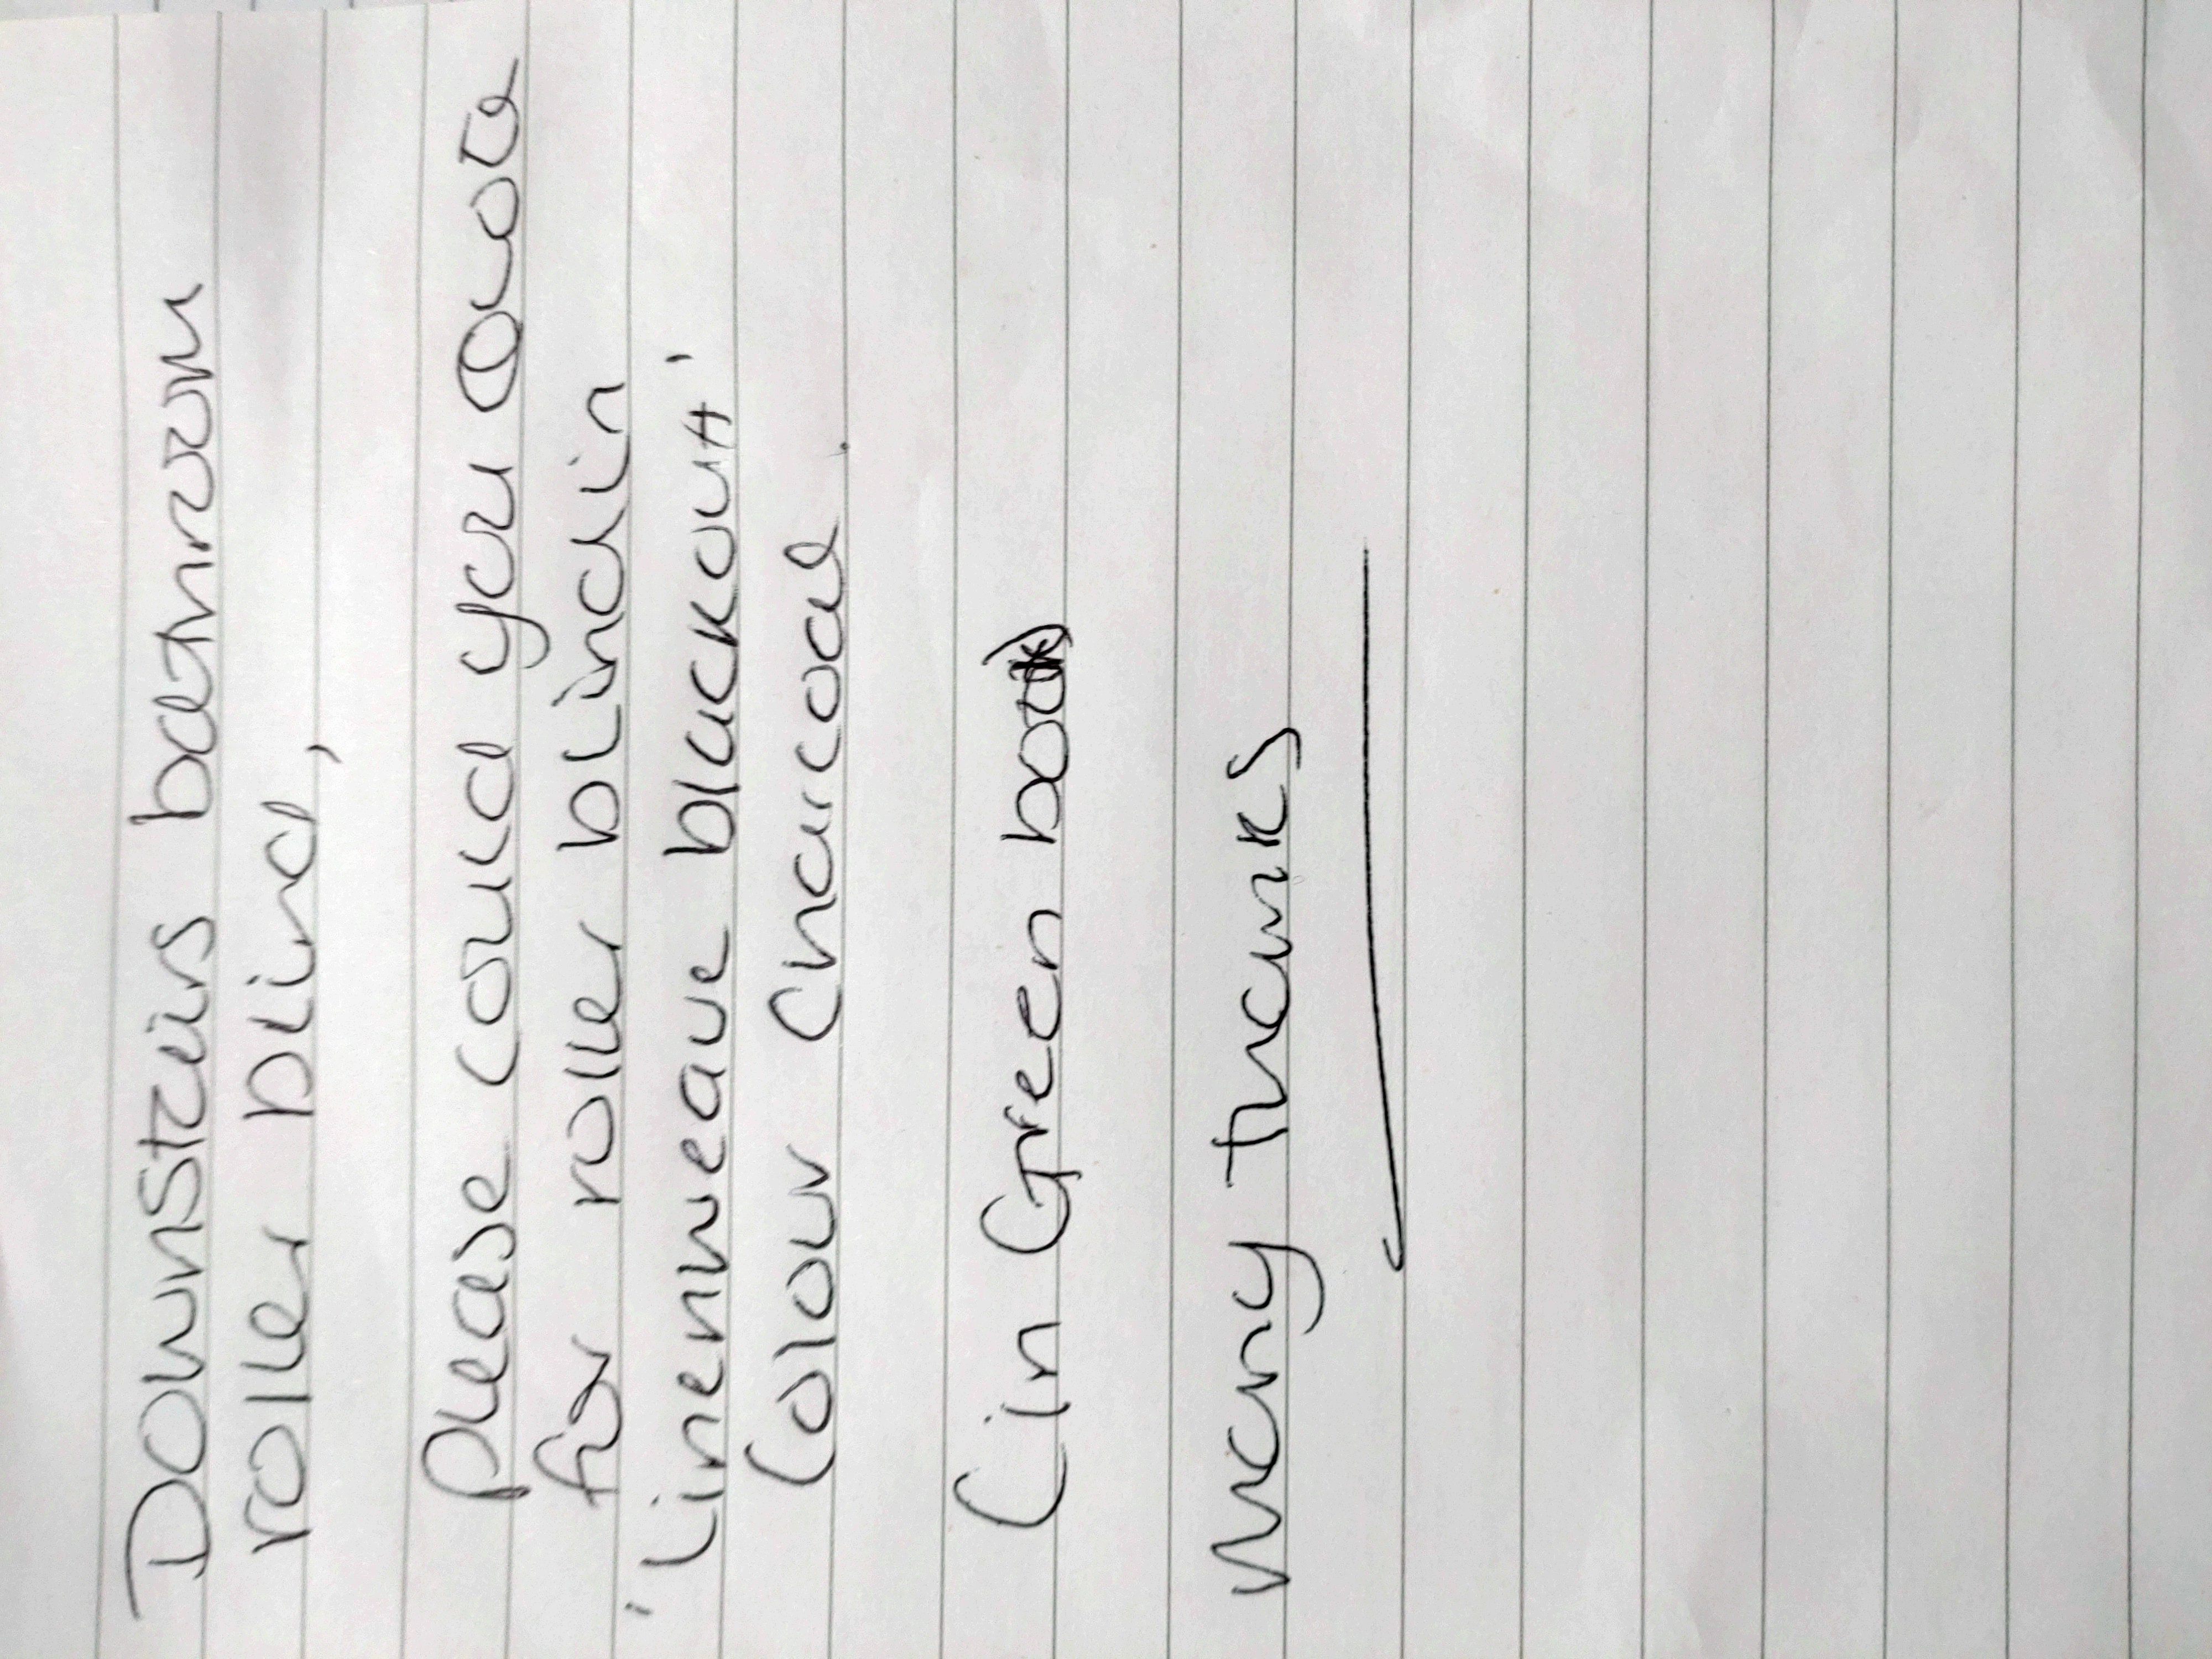 Downstairs bathroom
roller blind,
Please could you quote
for roller blind in
'Linenweave blackout'
Colour Charcoal.
(in Green book)
Many thanks